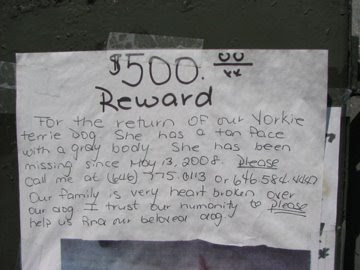 $500.00
Reward
For the return of our Yorkie
terrie Dog. She has a tan face
with a gray body. She has been
missing since May 13, 2008. Please
call me at (646) 775.0113 or 646.584.
Our family is very heart broken over
our dog. I trust our humanity to please
help us find our beloved dog.